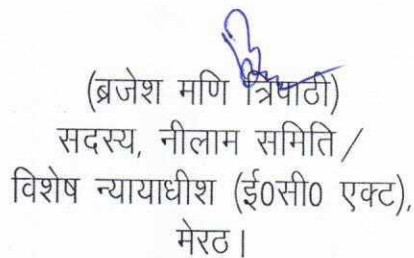 (ब्रजेश मणि त्रिपाठी)
सदस्य, नीलाम समिति /
विशेष न्यायाधीश (ई0सी0 एक्ट),
मेरठ।